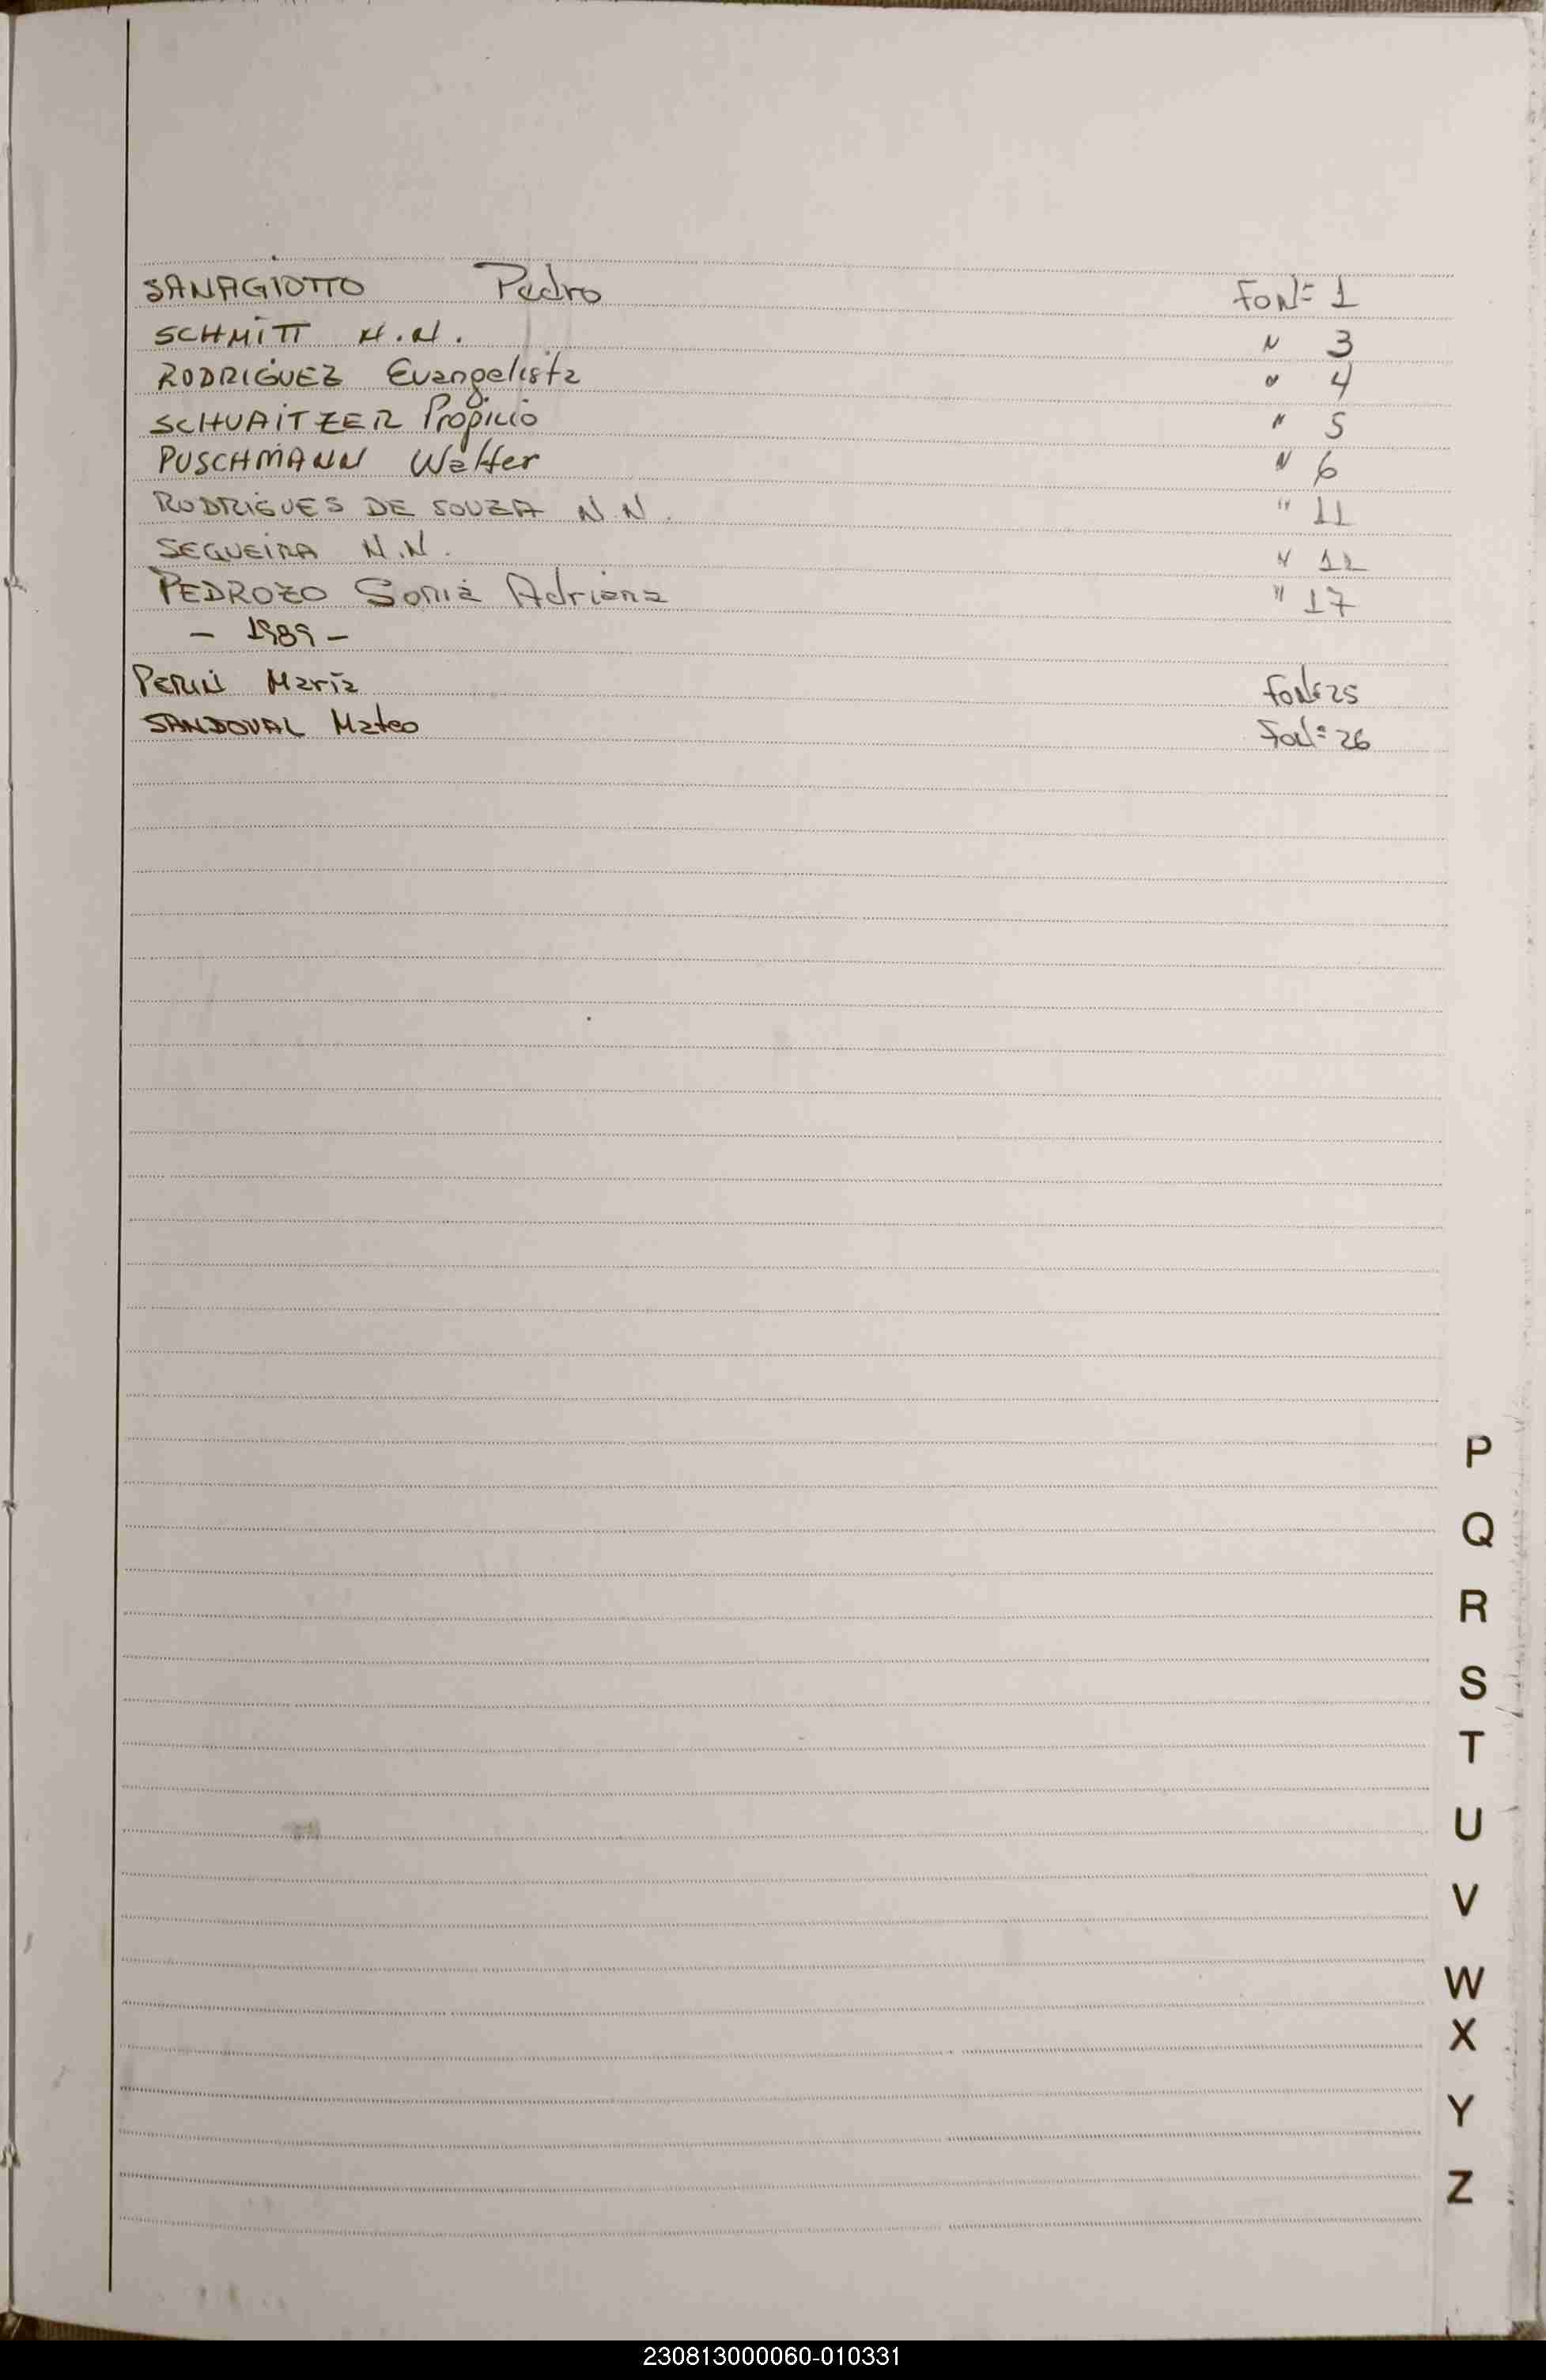 SANAGIOTTO Pedro FON= 1
SCHMITT N.N. " 3
RODRIGUEZ Evangelista " 4
SCHUAITZER Propicio " 5
PUSCHMANN Walter " 6
RODRIGUES DE SOUZA N.N. " 11
SEGUEIRA N.N. " 12
PEDROZO Sonia Adriana " 17
- 1989 -
María FON= 25
SANDOVAL Mateo FON= 26
P
Q
R
S
T
U
V
W
X
Y
Z
230813000060-010331